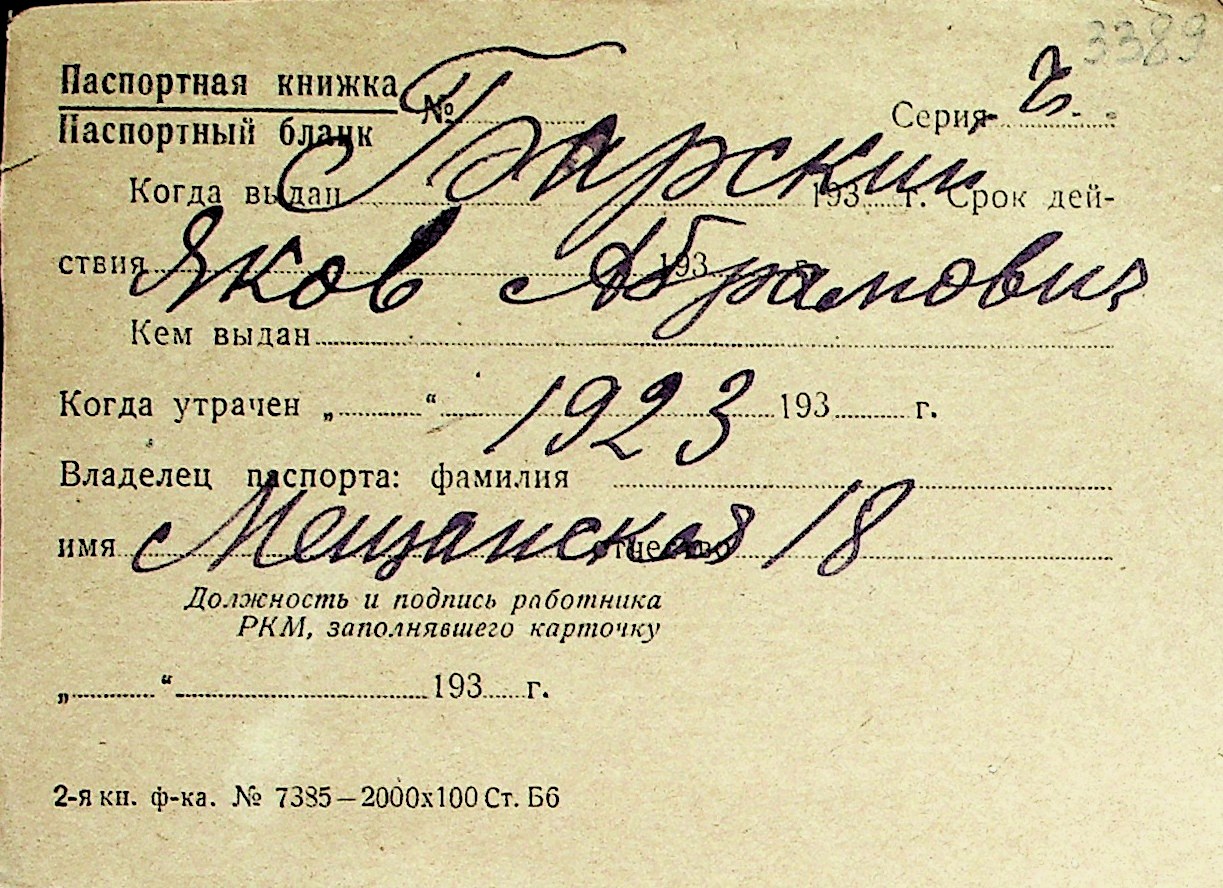 3389
Паспортная книжка
Паспортный бланк № Серия
Барский
Когда выдан 193 г. Срок дей-
ствия 193 г.
Яков Абрамович
Кем выдан
Когда утрачен „ “ 193 г.
1923
Владелец паспорта: фамилия
имя отчество
Мещанская 18
Должность и подпись работника
РКМ, заполнявшего карточку
„ “ 193 г.
2-я кн. ф-ка. № 7385—2000х100 Ст. Б6